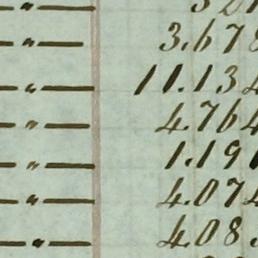 — " — 3.678
— " — 11.134
— " — 4.764
— " — 1.191
— " — 4.074
— " — 4.08